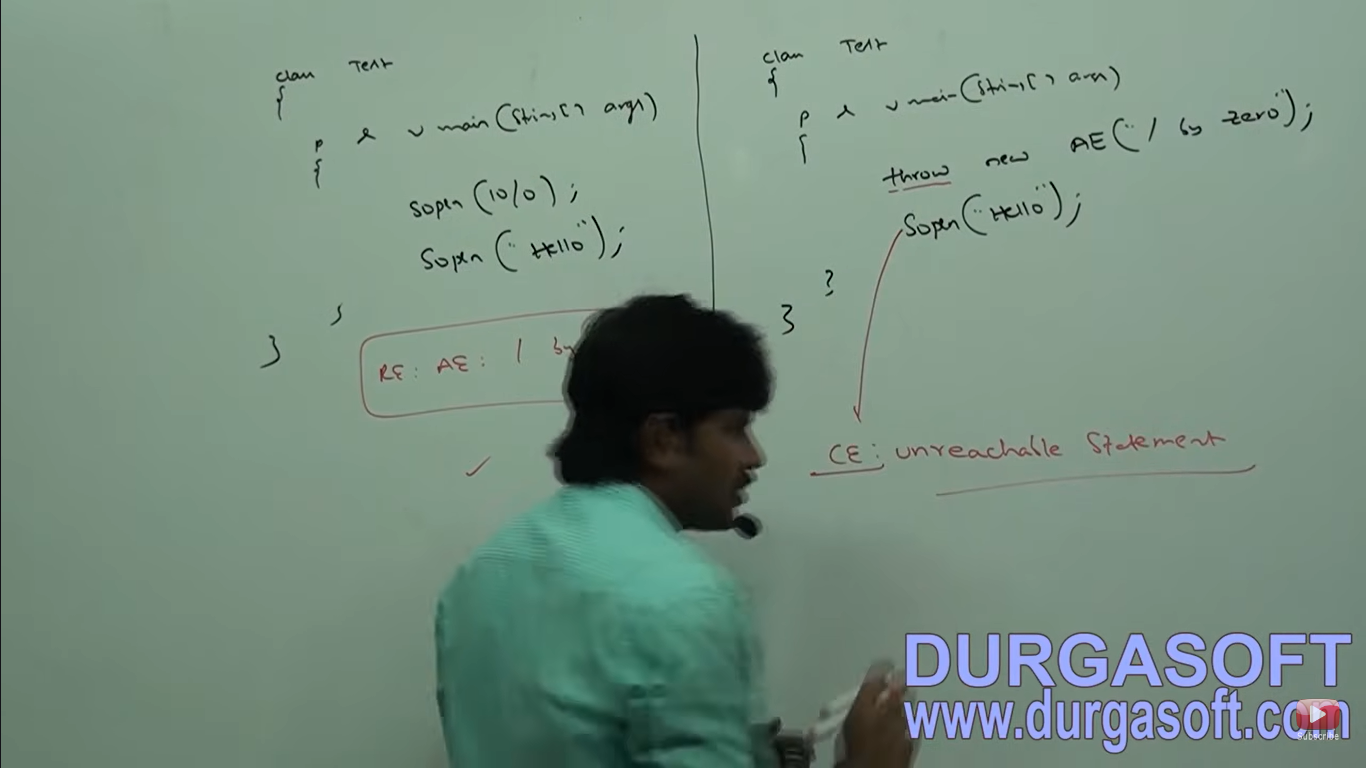 class Test
{
p s v main(String[] args)
{
sopln(10/0);
sopln("Hello");
}
}
RE: AE: / by
class Test
{
p s v main(String[] args)
{
throw new AE("/ by zero");
sopln("Hello");
}
}
CE: unreachable statement
DURGASOFT
www.durgasoft.com
Subscribe